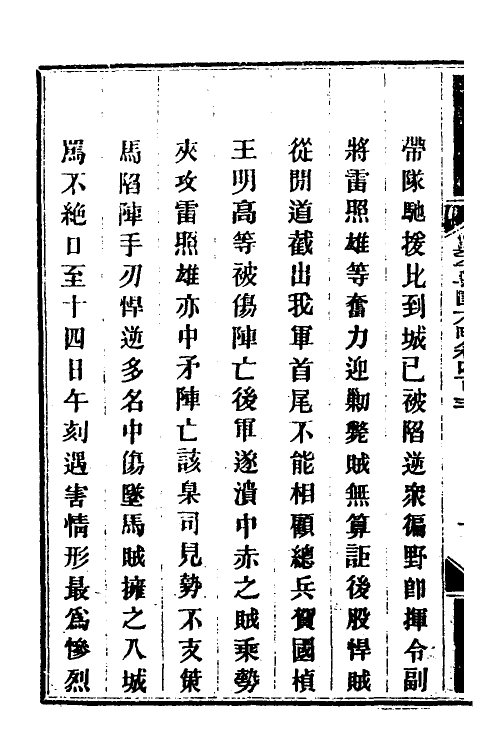 帶隊馳援比到城已被陷逆衆徧野卽揮令副
將雷照雄等奮力迎勦斃賊無算詎後股悍賊
從閒道截出我軍首尾不能相顧總兵賀國楨
王明高等被傷陣亡後軍遂潰中赤之賊乘勢
夾攻雷照雄亦中矛陣亡該臬司見勢不支策
馬陷陣手刃悍逆多名中傷墜馬賊擁之入城
罵不絶口至十四日午刻遇害情形最爲慘烈